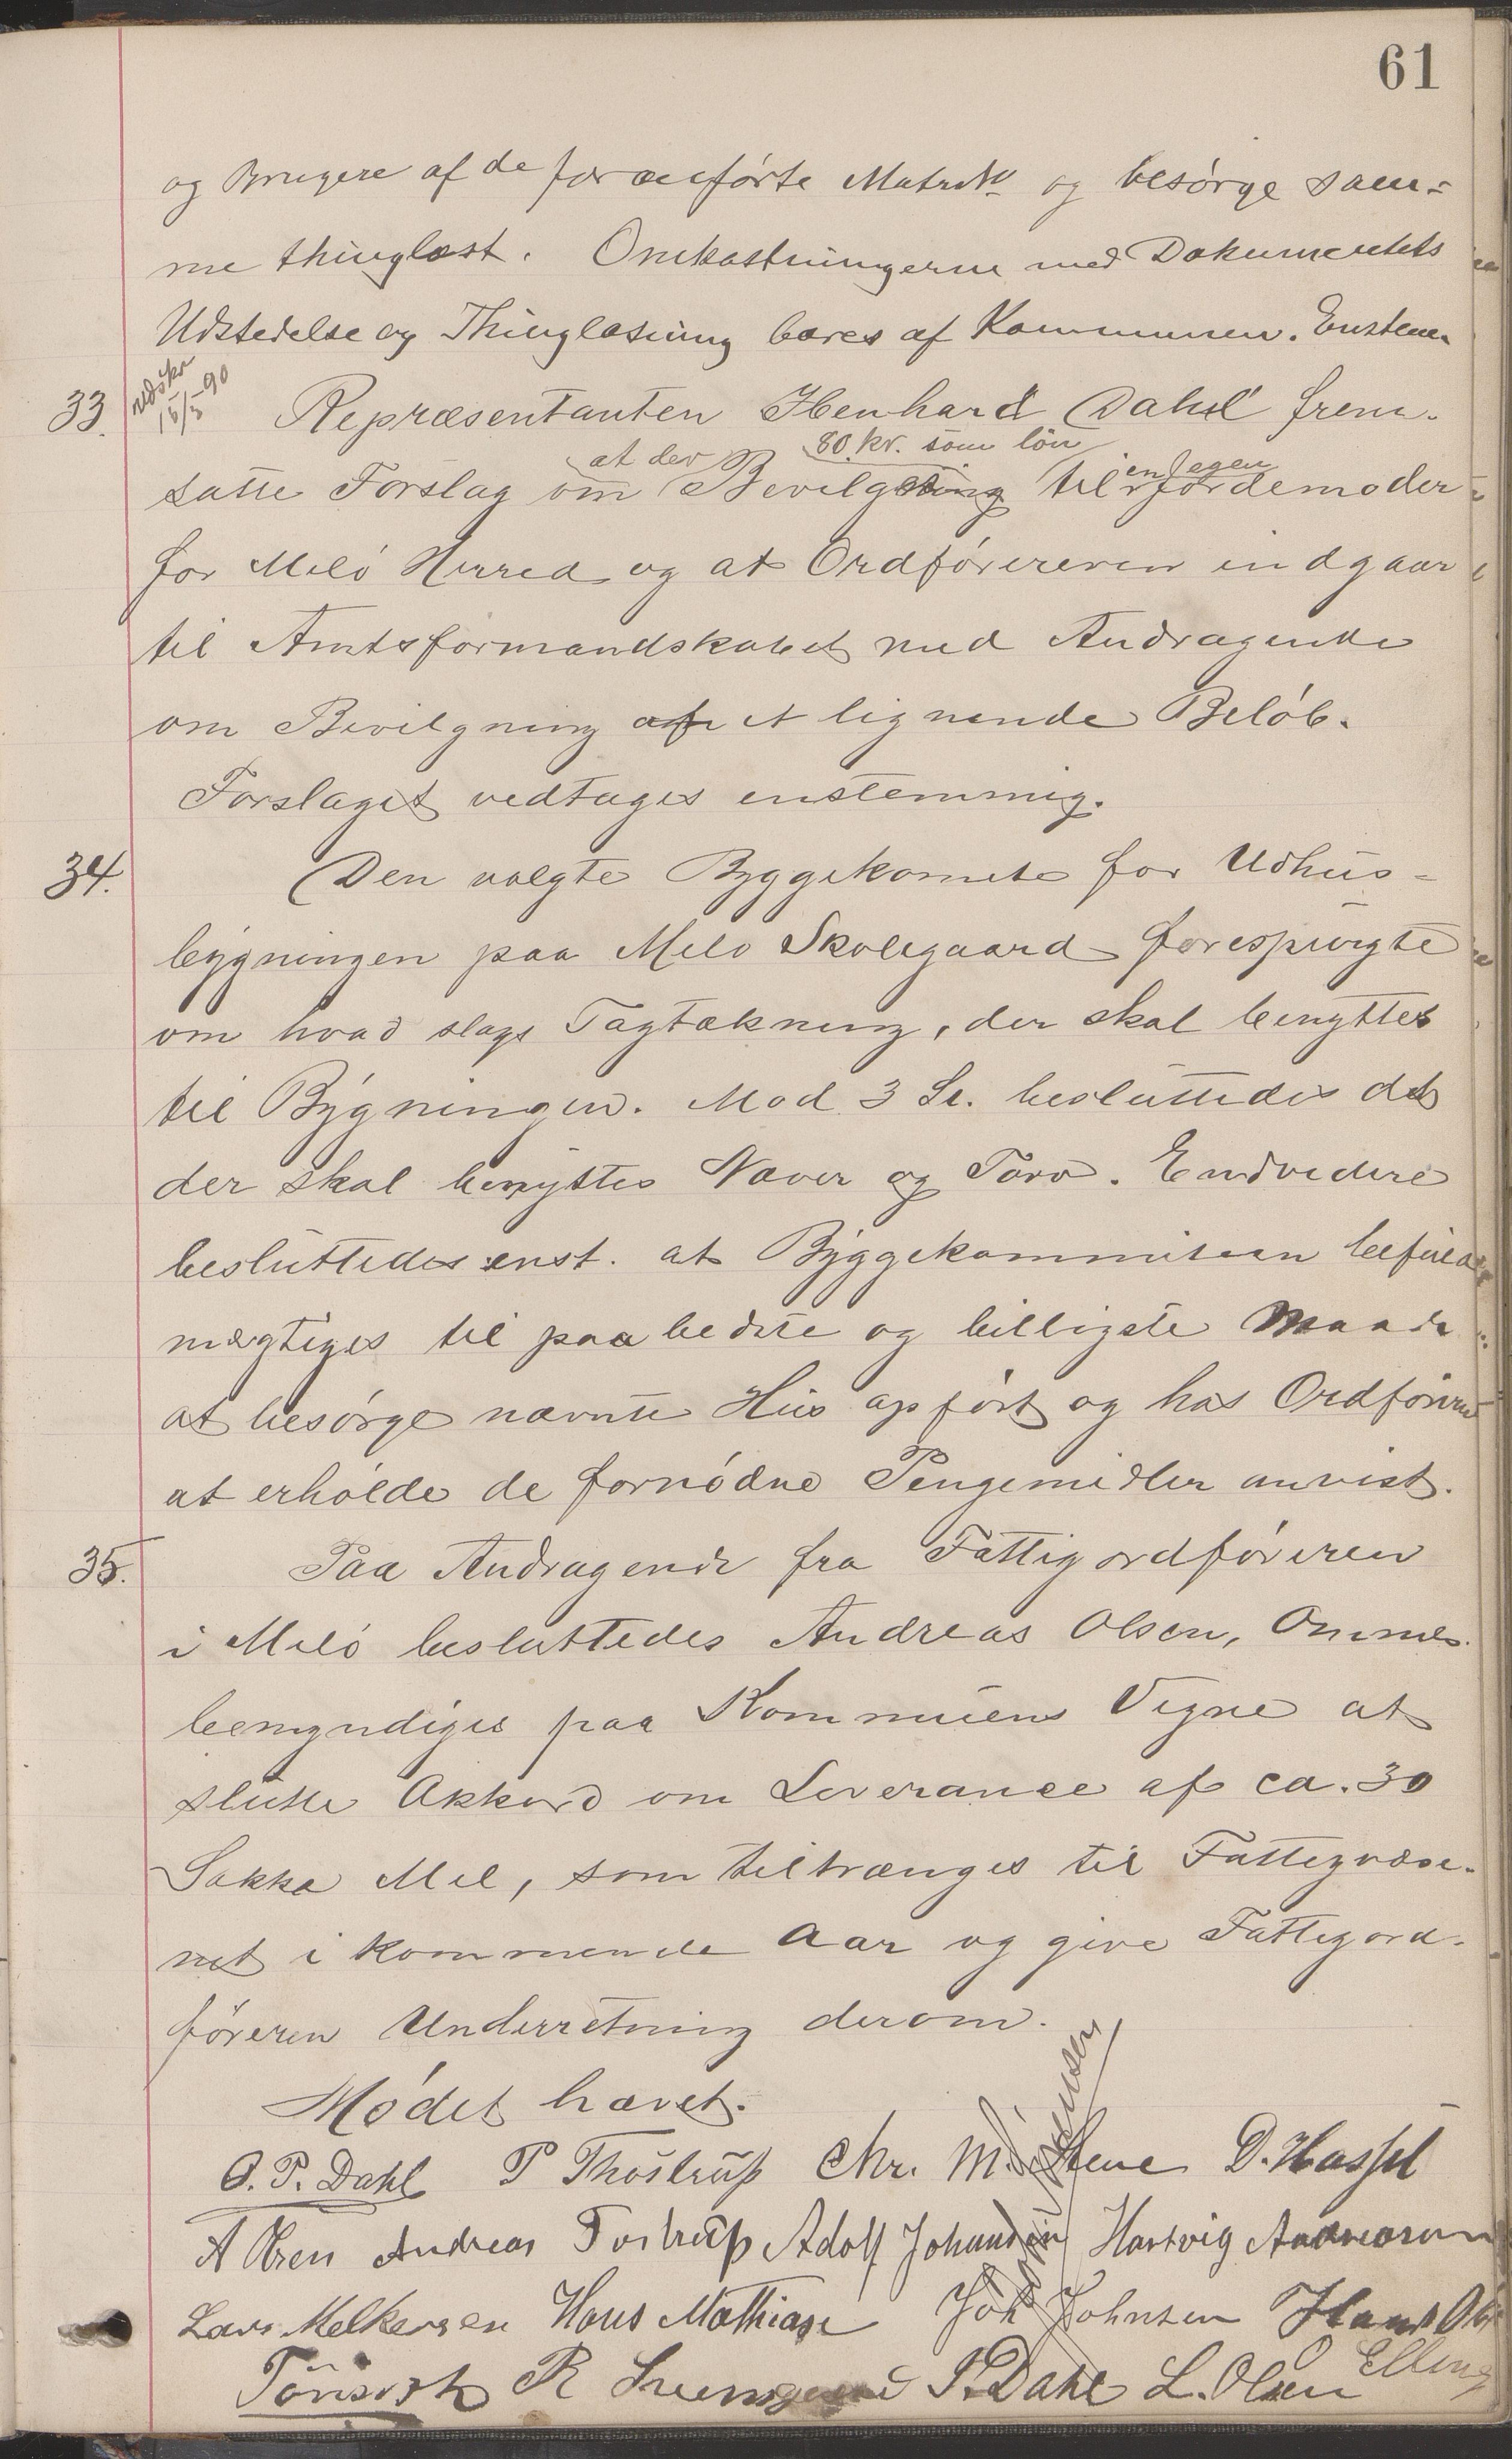 61
og Brugere af de foranførte MatrNo og besørge sam-
me thinglæst. Omkostningerne med Dokumentets
Udstedelse og Thinglæsning bæres af Kommunen. Enstem.
33. udskr 15/3-90 Repræsentanten Ebenhard Dahl frem-
at der 80 kr. som løn en Jegen
satte Forslag om Bevilgning til Jordemoder
for Melø Herred og at Ordføreren indgaar
til Amtsformandskabet med Andragende
om Bevilgning af et lignende Beløb.
Forslaget vedtages enstemmig.
34. Den valgte Byggekomite for Udhus-
bygningen paa Melø Skolegaard forespurgte
om hvad slags Tagtækning, der skal benyttes
til Bygningen. Mod 3 St. besluttedes det
der skal benyttes Næver og Torv. Endvidere
besluttedes enst. at Byggekommiteen befuld-
mægtiges til paa bedste og billigste Maade
at besørge nævnte Hus opført og hos Ordføreren
at erholde de fornødne Pengemidler anvist.
35. Paa Andragende fra Fattigordføreren
i Melø besluttedes Andreas Olsen, Ommes.
bemyndiges paa Kommuens Vegne at
slutte Akkord om Leverance af ca. 30
Sække Mel, som tiltrænges til Fattigvæse-
net i kommende Aar og give Fattigord-
føreren Underretning derom.
Mødet hævet.
O. P. Dahl P Thostrup Chr. M. Stene D. Hassel
A Olsen Andreas Tostrup Adolf Johansen Hartvig Andreasen
Lars Melkersen Hans Mathias Joh Johnsen Hans Ols
Tønsvik R Svensgaard P. Dahl L. Olsen Elling